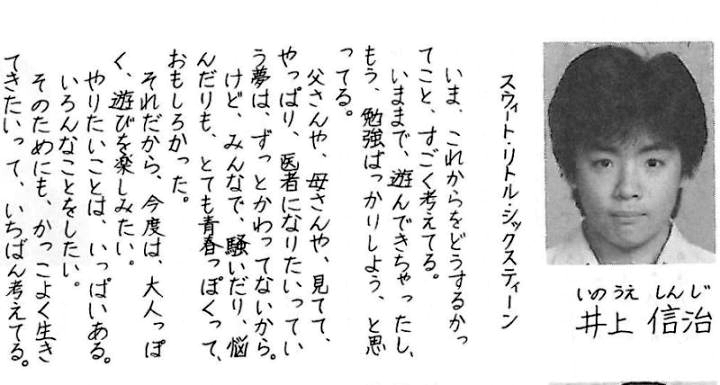 スウィート・リトル・シックスティーン
いま、これからをどうするかっ
てこと、すごく考えてる。
いままで、遊んできちゃったし、
もう、勉強ばっかりしよう、と思
ってる。
父さんや、母さんや、見てて、
やっぱり、医者になりたいってい
う夢は、ずっとかわってないから。
けど、みんなで、騒いだり、悩
んだりも、とても青春っぽくって、
おもしろかった。
それだから、今度は、大人っぽ
く、遊びを楽しみたい。
やりたいことは、いっぱいある。
いろんなことをしたい。
そのためにも、かっこよく生き
てきたいって、いちばん考えてる。
いのうえ しんじ
井上 信治